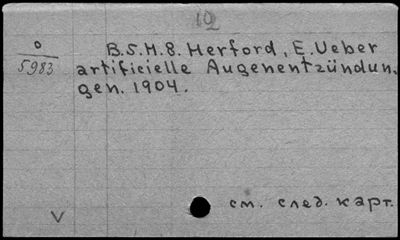 10
0
5983
B.S.H.8. Herford, E. Ueber
artificielle Augenentzündun,
gen. 1904.
см. след. карт.
V